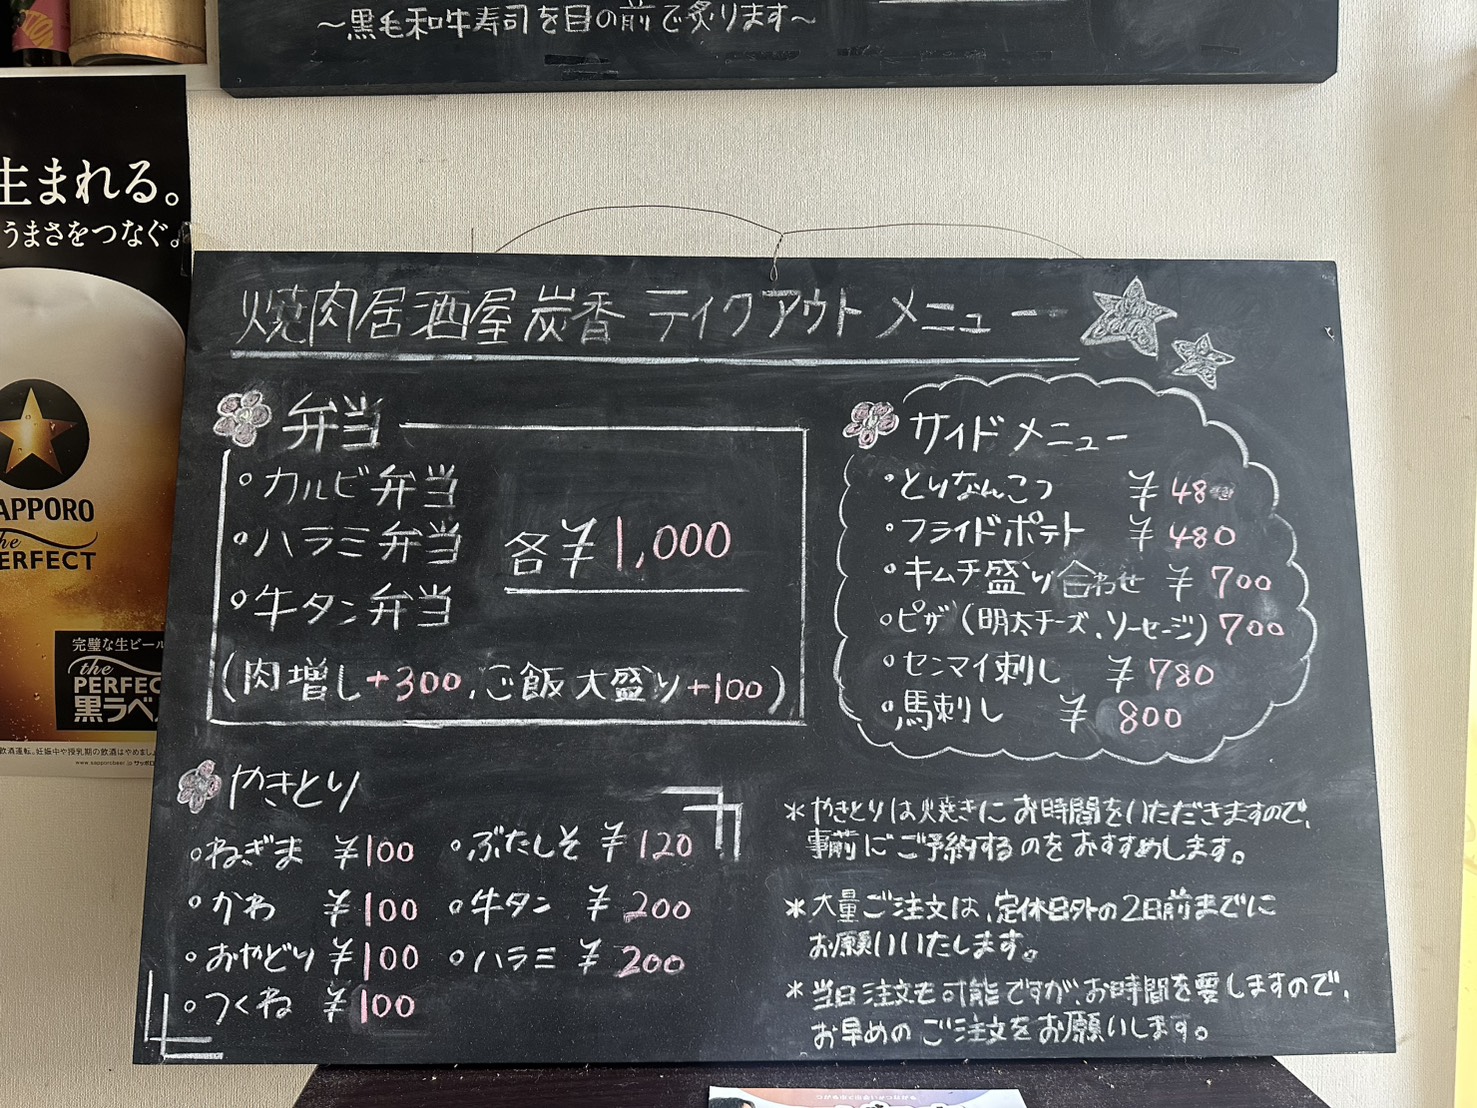 ～黒毛和牛寿司を目の前で炙ります～
生まれる。
うまさをつなぐ。
SAPPORO
the
PERFECT
完璧な生ビール
the
PERFEC
黒ラベ
www.sapporobeer.jp サッポロ
焼肉居酒屋炭香 テイクアウト メニュー
弁当
・カルビ弁当
・ハラミ弁当
・牛タン弁当
各¥1,000
(肉増し+300、ご飯大盛り+100)
サイドメニュー
・とりなんこつ ¥48
・フライドポテト ¥480
・キムチ盛り合わせ ¥700
・ピザ(明太チーズ、ソーセージ)700
・センマイ刺し ¥780
・馬刺し ¥800
やきとり
・ねぎま ¥100 ・ぶたしそ ¥120
・かわ ¥100 ・牛タン ¥200
・おやどり ¥100 ・ハラミ ¥200
・つくね ¥100
＊やきとりは火焼きにお時間をいただきますので、
事前にご予約するのをおすすめします。
＊大量ご注文は、定休日外の2日前までに
お願いいたします。
＊当日注文も可能ですが、お時間を要しますので、
お早めのご注文をお願いします。